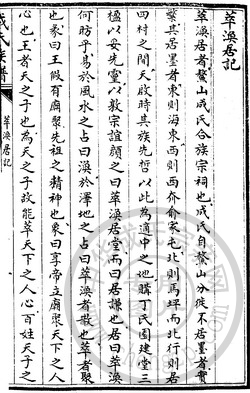 萃渙居記
萃渙居者鰲山成氏合族宗祠也成氏自鰲山分徙不居墨者實
繁其居墨者東則海東西則西俞家屯北則馬坪而北行則居
四村之間天啟時其族先哲以此為適中之地購丁氏園建堂三
楹以安先靈以敦宗誼顏之曰萃渙居堂而曰居謙也居曰萃渙
何昉乎易於風水之占曰渙於澤地之占曰萃渙者散也萃者聚
也彖曰王假有廟聚先祖之精神也象曰享帝立廟聚天下之人
心也王者天之子也為天之子故能萃天下之人心百姓天子之
氏族譜
萃渙居記